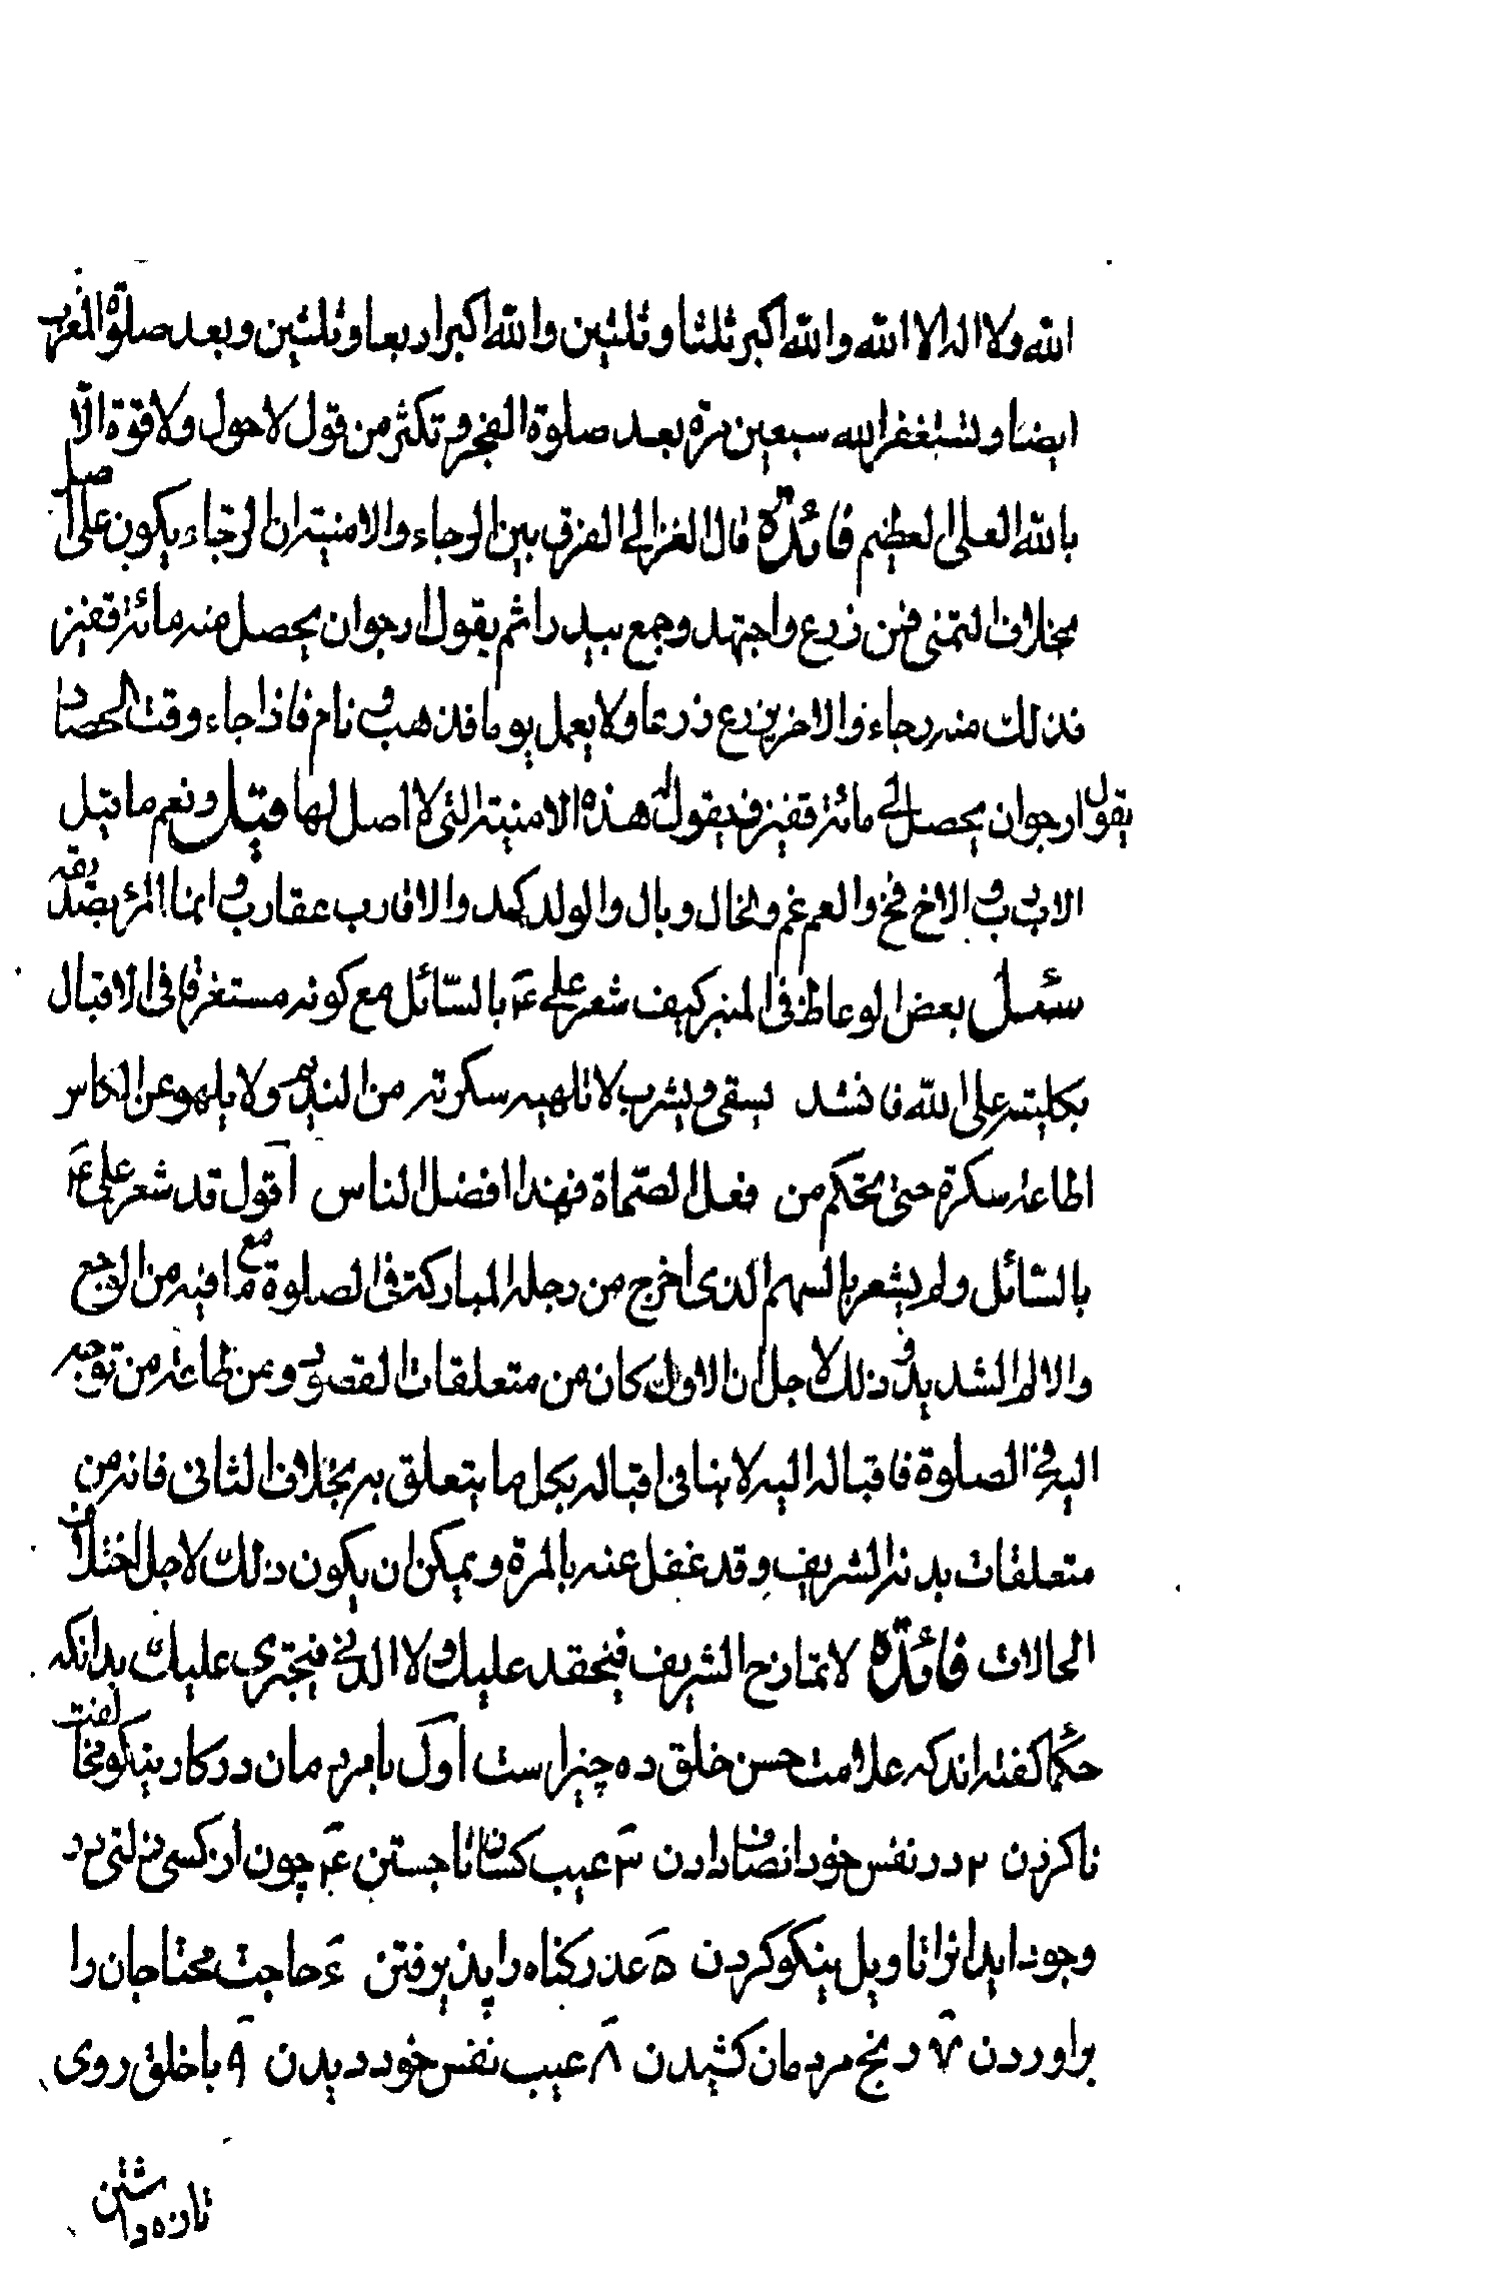 الله ولا اله الا الله والله اكبر ثلثا وثلثين والله اكبر اربعا وثلثين وبعد صلوة المغرب
ايضا وتستغفر الله سبعين مرة بعد صلوة الفجر وتكثر من قول لا حول ولا قوة الا
بالله العلى العظيم فائدة قال الغزالى الفرق بين الرجاء والامنية ان الرجاء يكون على اصل
بخلاف التمنى فمن زرع واجتهد وجمع بيدرا ثم يقول ارجوان يحصل منه مائة قفيز
فذلك منه رجاء والاخر يزرع زرعا ولا يعمل يوما فذهب ونام فاذا جاء وقت الحصاد
يقول ارجوان يحصل لى مائة قفيز فيقول له هذه الامنية التى لا اصل لها قيل ونعم ما قيل
الاب رب والاخ فخ والعم غم والخال وبال والولد كمد والاقارب عقارب وانما المرء بصديقه
سئل بعض الوعاظ فى المنبر كيف شعر على ع بالسائل مع كونه مستغرقا فى الاقبال
بكليته على الله فانشد يسقى ويشرب لا تلهيه سكرته من النديم ولا يلهو عن الكاس
اطاعه سكره حتى تحكم من فعل الصحاة فهذا افضل الناس اقول قد شعر على ع
بالسائل ولم يشعر بالسهم الذى اخرج من رجله المباركة فى الصلوة مع ما فيه من الوجع
والالم الشديد وذلك لاجل ان الاول كان من متعلقات القصوى ومن طاعة من توجه
اليه فى الصلوة فاقباله اليه لا ينافى اقباله بكل ما يتعلق به بخلاف الثانى فانه من
متعلقات بدنه الشريف وقد غفل عنه بالمرة ويمكن ان يكون ذلك لاجل اختلاف
الحالات فائدة لا تمازح الشريف فيحقد عليك ولا الدنى فيجترى عليك بدانكه
حكما كفته اند كه علامت حسن خلق ده چيز است اول با مردمان در كار نيكو مخالفت
ناكردن ٢ در نفس خود انصاف دادن ٣ عيب كسان ناجستن ۴ چون از كسى زلتى در
وجود ايد انرا تاويل نيكو كردن ۵ عذر كناه را پذيرفتن ۶ حاجت محتاجان را
براوردن ٧ رنج مردمان كشيدن ٨ عيب نفس خود ديدن ٩ با خلق روى
تازه داشتن